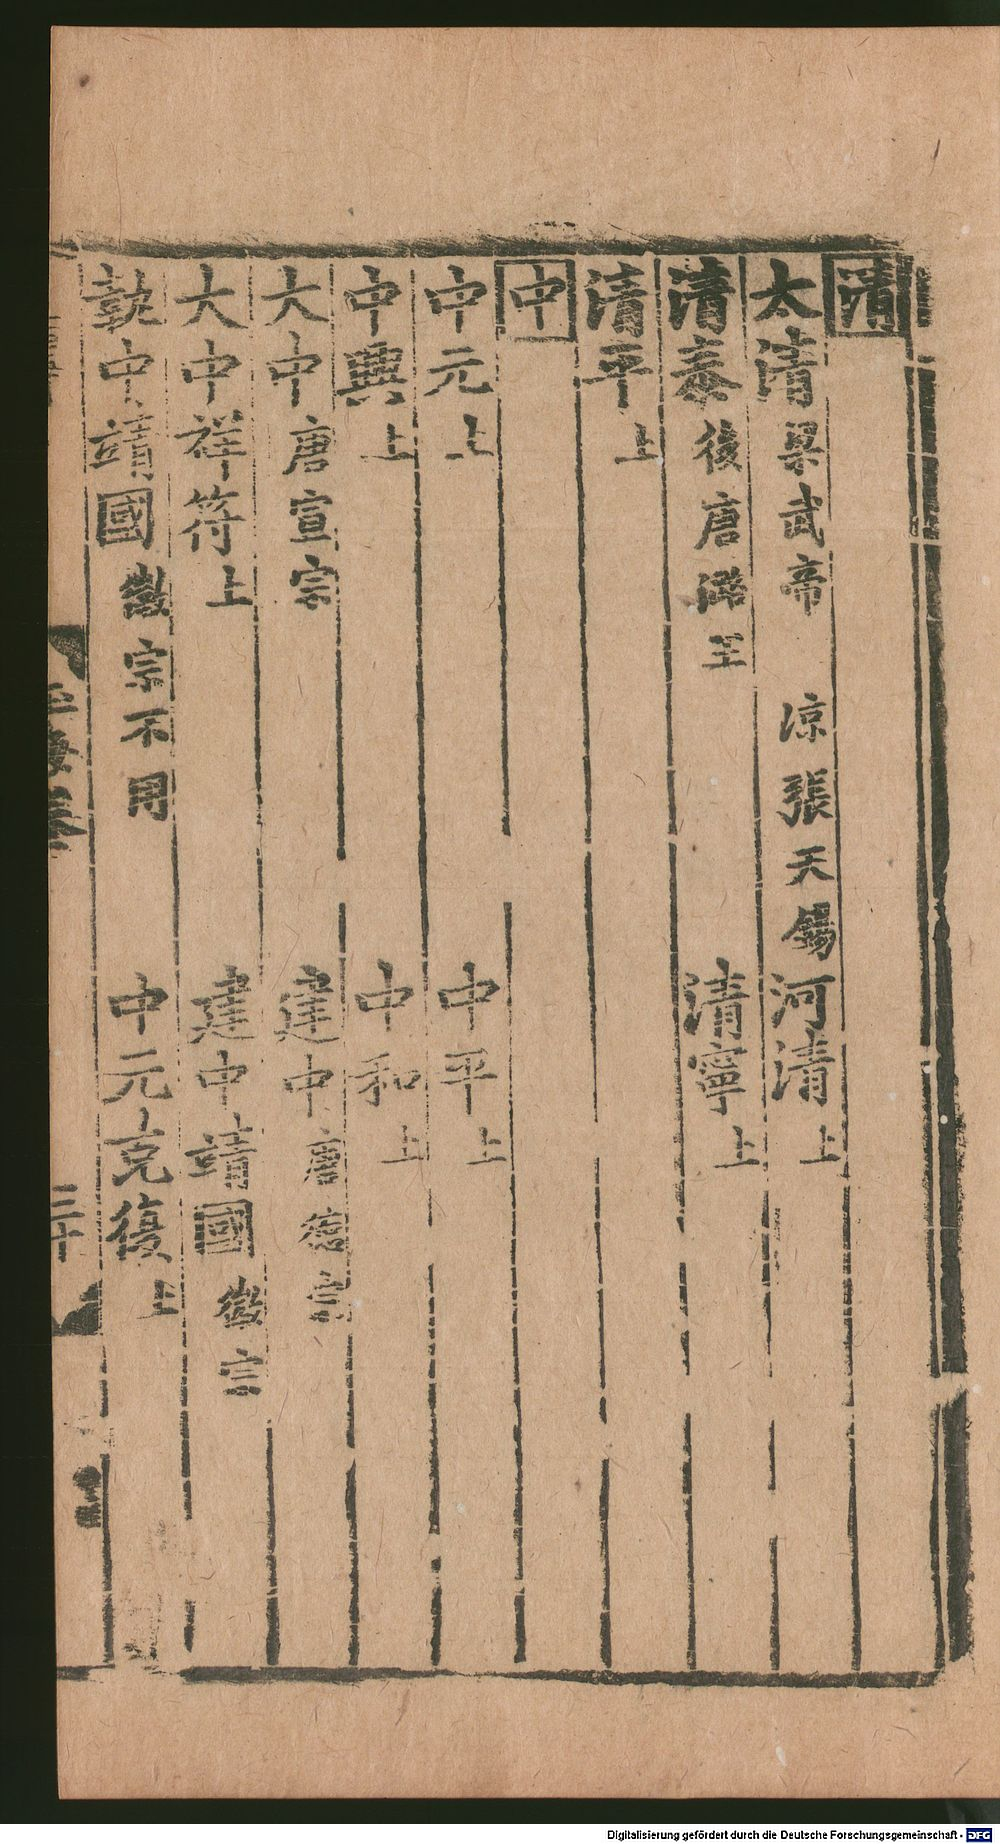 清
太清 梁武帝 涼張天錫 河清 上
清泰 後唐潞王 清寧 上
清平 上
中
中元 上 中平 上
中興 上 中和 上
大中 唐宣宗 建中 唐德宗
大中祥符 上 建中靖國 徽宗
中靖國 徽宗不用 中元克復 上
玉海卷
Digitalisierung gefördert durch die Deutsche Forschungsgemeinschaft - DFG